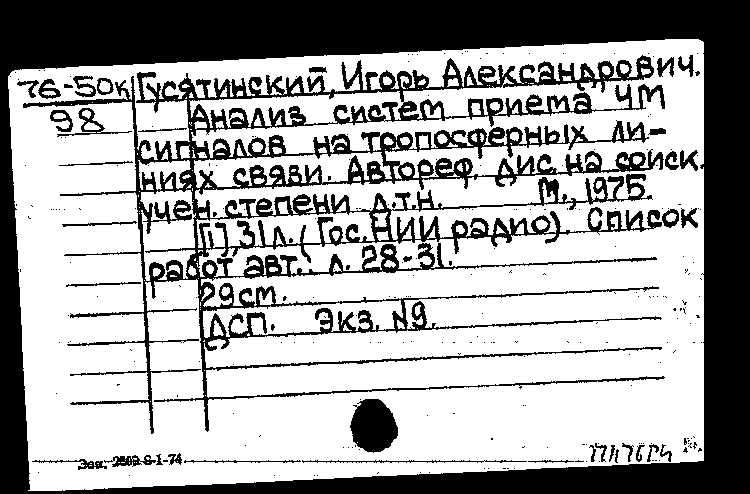 76-50к Гусятинский, Игорь Александрович.
98 Анализ систем приема ЧМ
сигналов на тропосферных ли-
ниях связи. Автореф. дис. на соиск.
учен. степени д.т.н. М., 1975.
[1], 31 л. (Гос. НИИ радио). Список
работ авт.: л. 28-31.
29 см.
ДСП. Экз. №9.
Зак. 2569 8-I-74